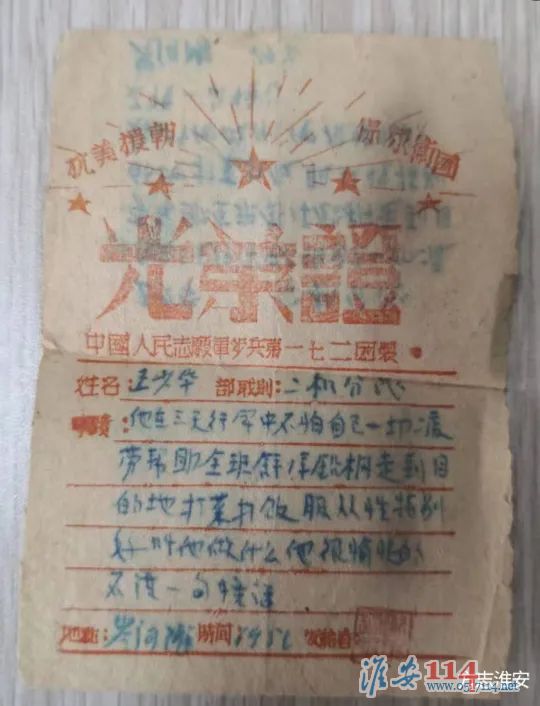 抗美援朝 保家衛國
光荣證
中國人民志願軍步兵第一七二团製
姓名:王少华 部職別:二机分队
事蹟:他在三天行军中不怕自己一切疲
劳帮助全班 走到目
的地打菜打饭服从性特别
好叫他做什么他很愉快的
不 一句
地點: 時間:1951 發給者:
淮安114 方志淮安
www.0517114.net